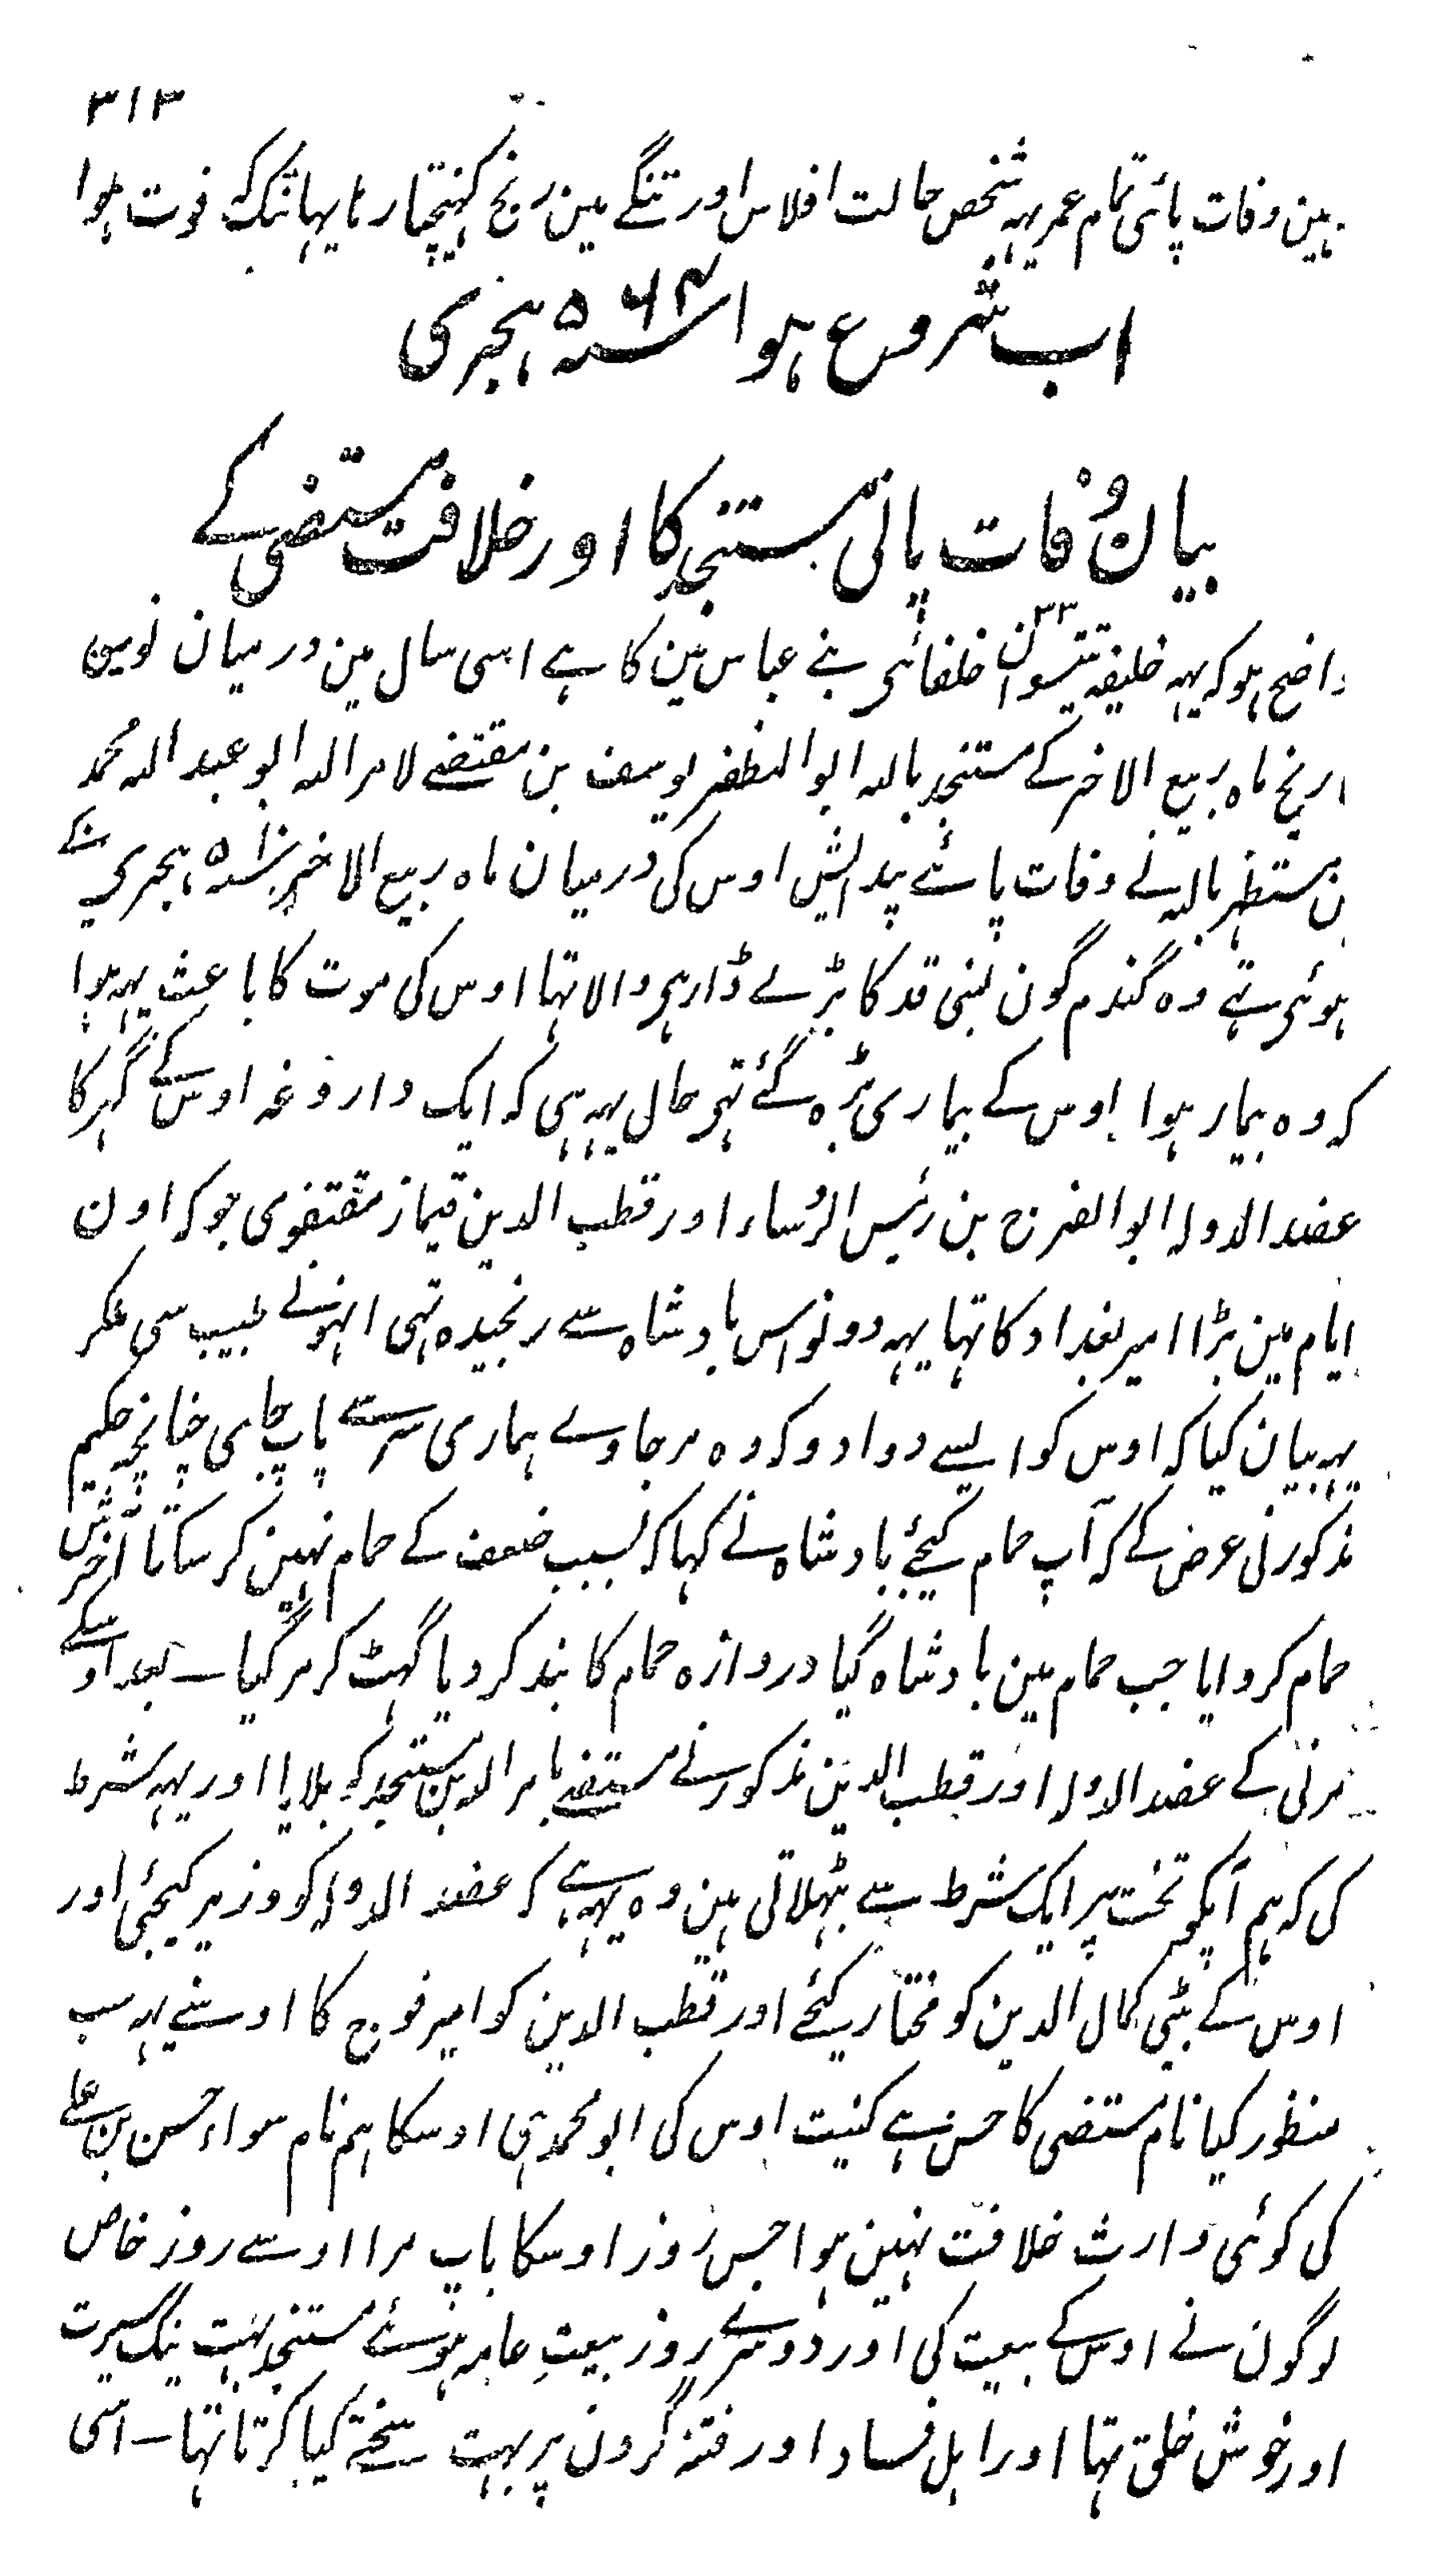 ۳۱۳
مین وفات پائی تمام عمر یہہ شخص حالت افلاس اور تنگے مین رنج کہنیچتا رہا یہانتک کہ فوت ہوا
اب شروع ہوا سنہ ۵۶۴ ہجری
بیان وفات پانی مستنجد کا اور خلافت مستضی کے
واضح ہو کہ یہہ خلیفہ تیتیسوان ۳۳ خلفائی بنے عباس مین کا ہے اسی سال مین درمیان نوین
تاریخ ماہ ربیع الاخر کے مستنجد باللہ ابو المظفر یوسف بن مقتضے لامر اللہ ابو عبد اللہ محمد
بن مستظہر باللہ نے وفات پائے پیدایش اوس کی درمیان ماہ ربیع الاخر سنہ ۵۱۰ ہجری کے
ہوئی تہے وہ گندم گون لنبی قد کا بڑے ڈارہی والا تہا اوس کی موت کا باعث یہہ ہوا
کہ وہ بیمار ہوا اوس کے بیماری بڑہ گئے تہی حال یہہ ہی کہ ایک داروغہ اوس کے گہر کا
عضد الدولہ ابو الفرج بن رئیس الرُساء اور قطب الدین قیماز مقتفوی جو کہ اون
ایام مین بڑا امیر بغداد کا تہا یہہ دونو اس بادشاہ سے رنجیدہ تہی انہونے طبیب سی ملکر
یہہ بیان کیا کہ اوس کو ایسے دوا دو کہ وہ مر جاوے ہماری سر سے پاپ جای چنانچہ حکیم
مذکور نی عرض کے کہ آپ حمام کیجئے بادشاہ نے کہا کہ بسبب ضعف کے حمام نہین کر سکتا آخرش
حمام کروایا جب حمام مین بادشاہ گیا دروازہ حمام کا بند کر دیا گہٹ کر مر گیا ـ بعد اوسکے
مرنی کے عضد الدولہ اور قطب الدین مذکور نے مستضے بامر اللہ بن مستنجد کو بلایا اور یہہ شرط
کی کہ ہم آپکو تخت پر ایک شرط سے بٹہلاتی ہین وہ یہہ ہے کہ عضد الدولہ کو وزیر کیجئی اور
اوس کے بیٹی کمال الدین کو مختار کیجئے اور قطب الدین کو امیر فوج کا اوسنے یہہ سب
منظور کیا نام مستضی کا حسن ہے کنیت اوس کی ابو محمد ہی اوسکا ہم نام سواء حسن بن علے
کی کوئی وارث خلافت نہین ہوا جس روز اوسکا باپ مرا اوسے روز خاص
لوگون نے اوس کے بیعت کی اور دوسرے روز بیعت عامہ ہوئے مستنجد بہت نیک سیرت
اور خوش خلق تہا اور اہل فساد اور فتنہ گرون پر بہت سختے کیا کرتا تہا ـ اسی